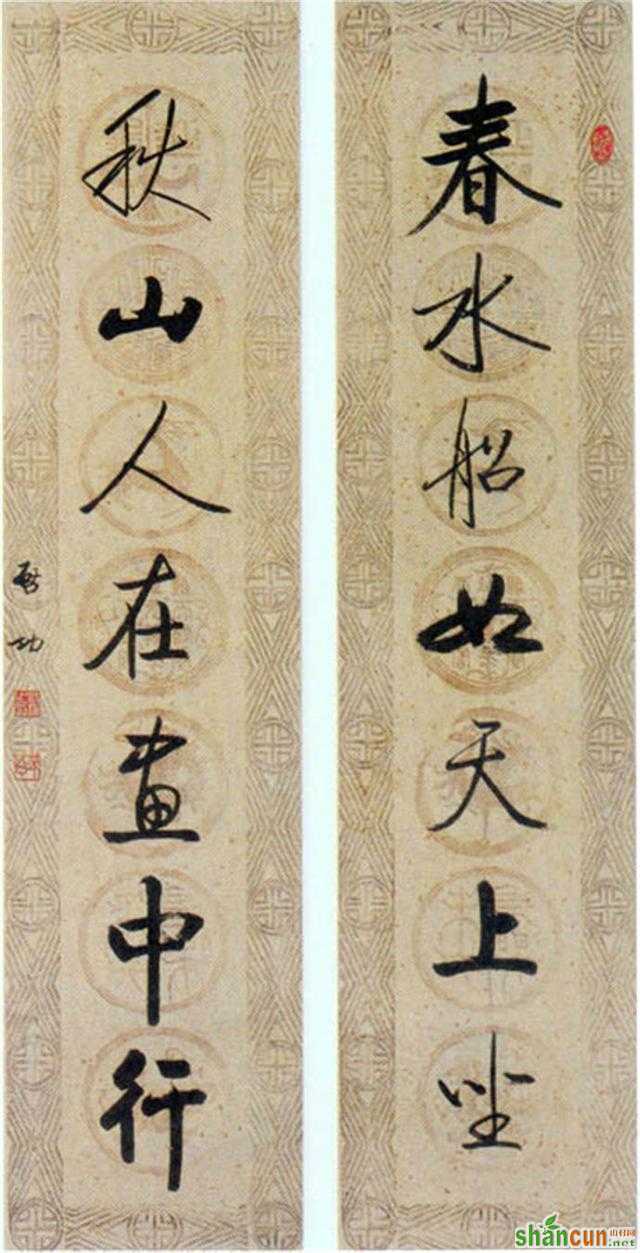 春水船如天上坐
秋山人在畫中行
啟功
shancun
山村网
.net